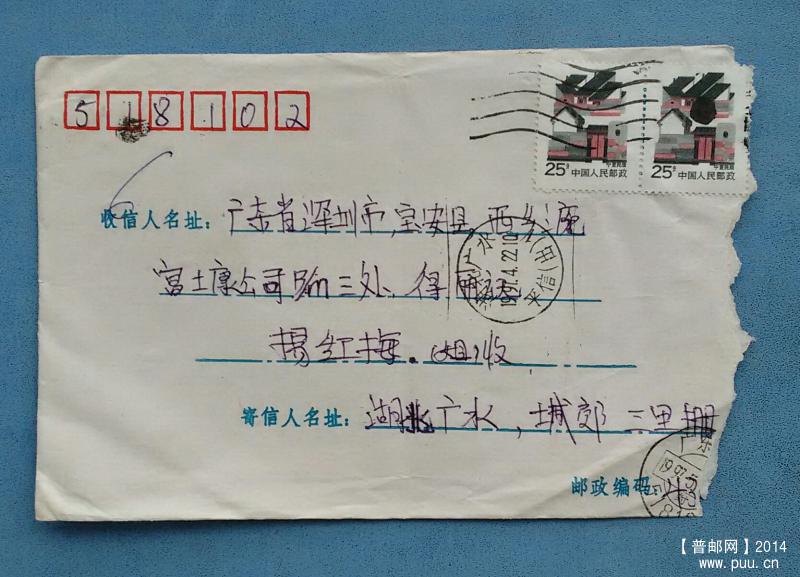 518102
25分 中国人民邮政 25分 中国人民邮政
收信人名址：广东省深圳市,宝安县,西乡
富士康公司 三处、
杨红梅.(姐)收
寄信人名址：湖北广水,城郊 三里
邮政编码：
1997.4.22.10
平信(五)
【普邮网】2014
www.puu.cn